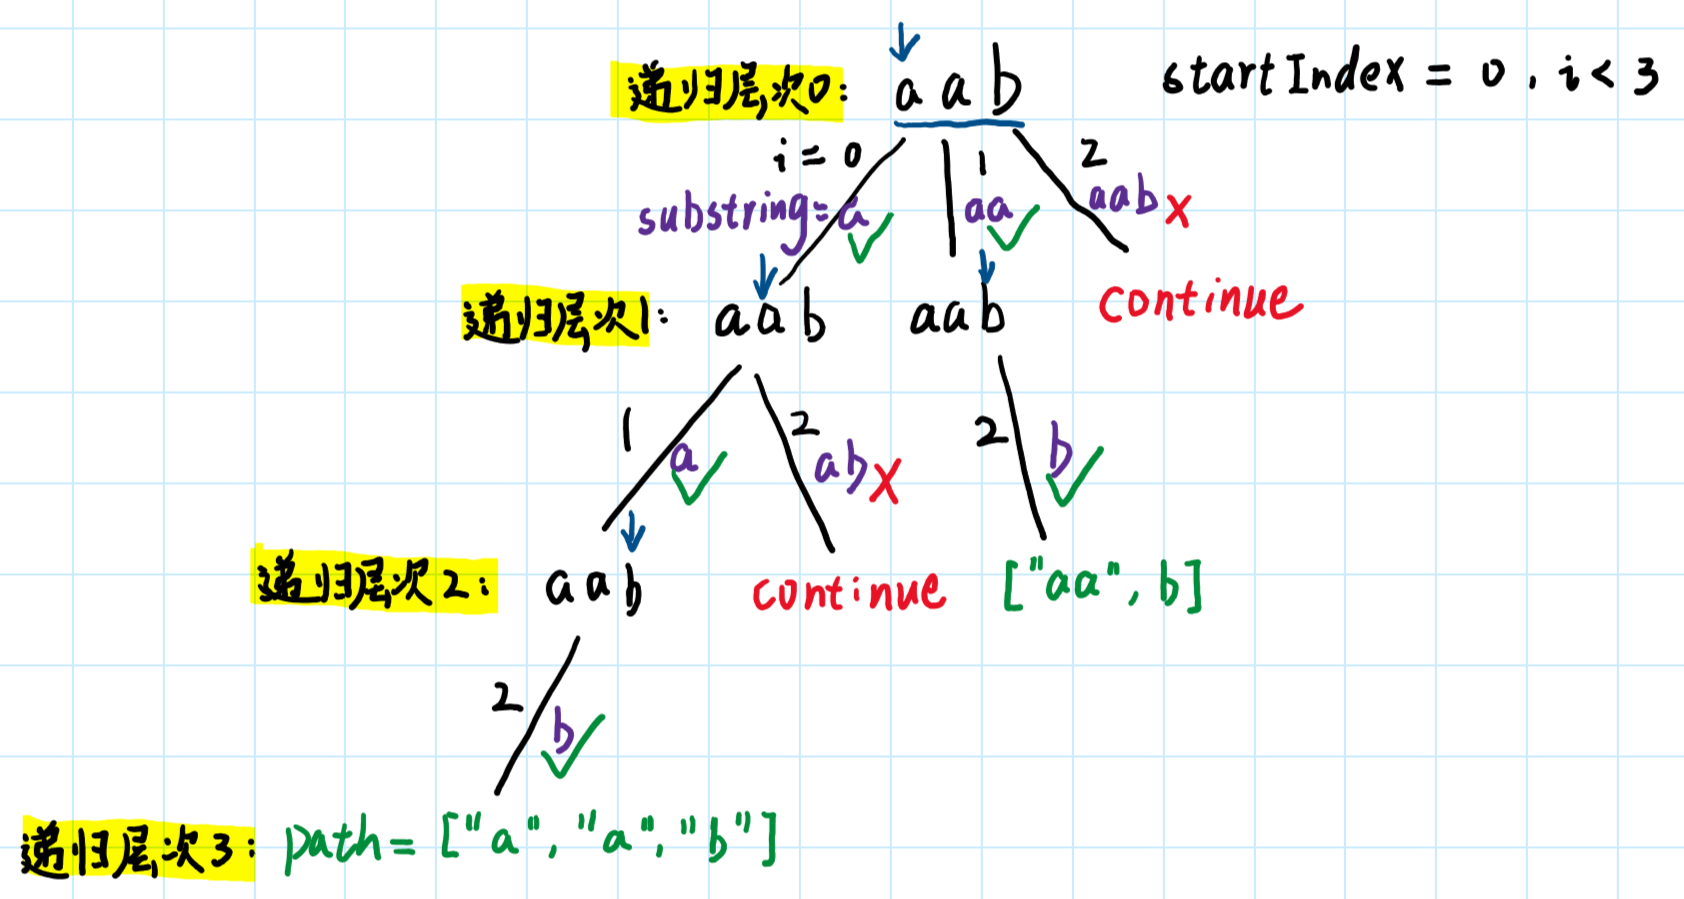 递归层次0: a a b startIndex = 0 , i < 3
i = 0 1 2
substring= a aa aab x
递归层次1: a a b a a b continue
1 2 2
a ab x b
递归层次2: a a b continue ["aa", b]
2
b
递归层次3: path= ["a", "a", "b"]